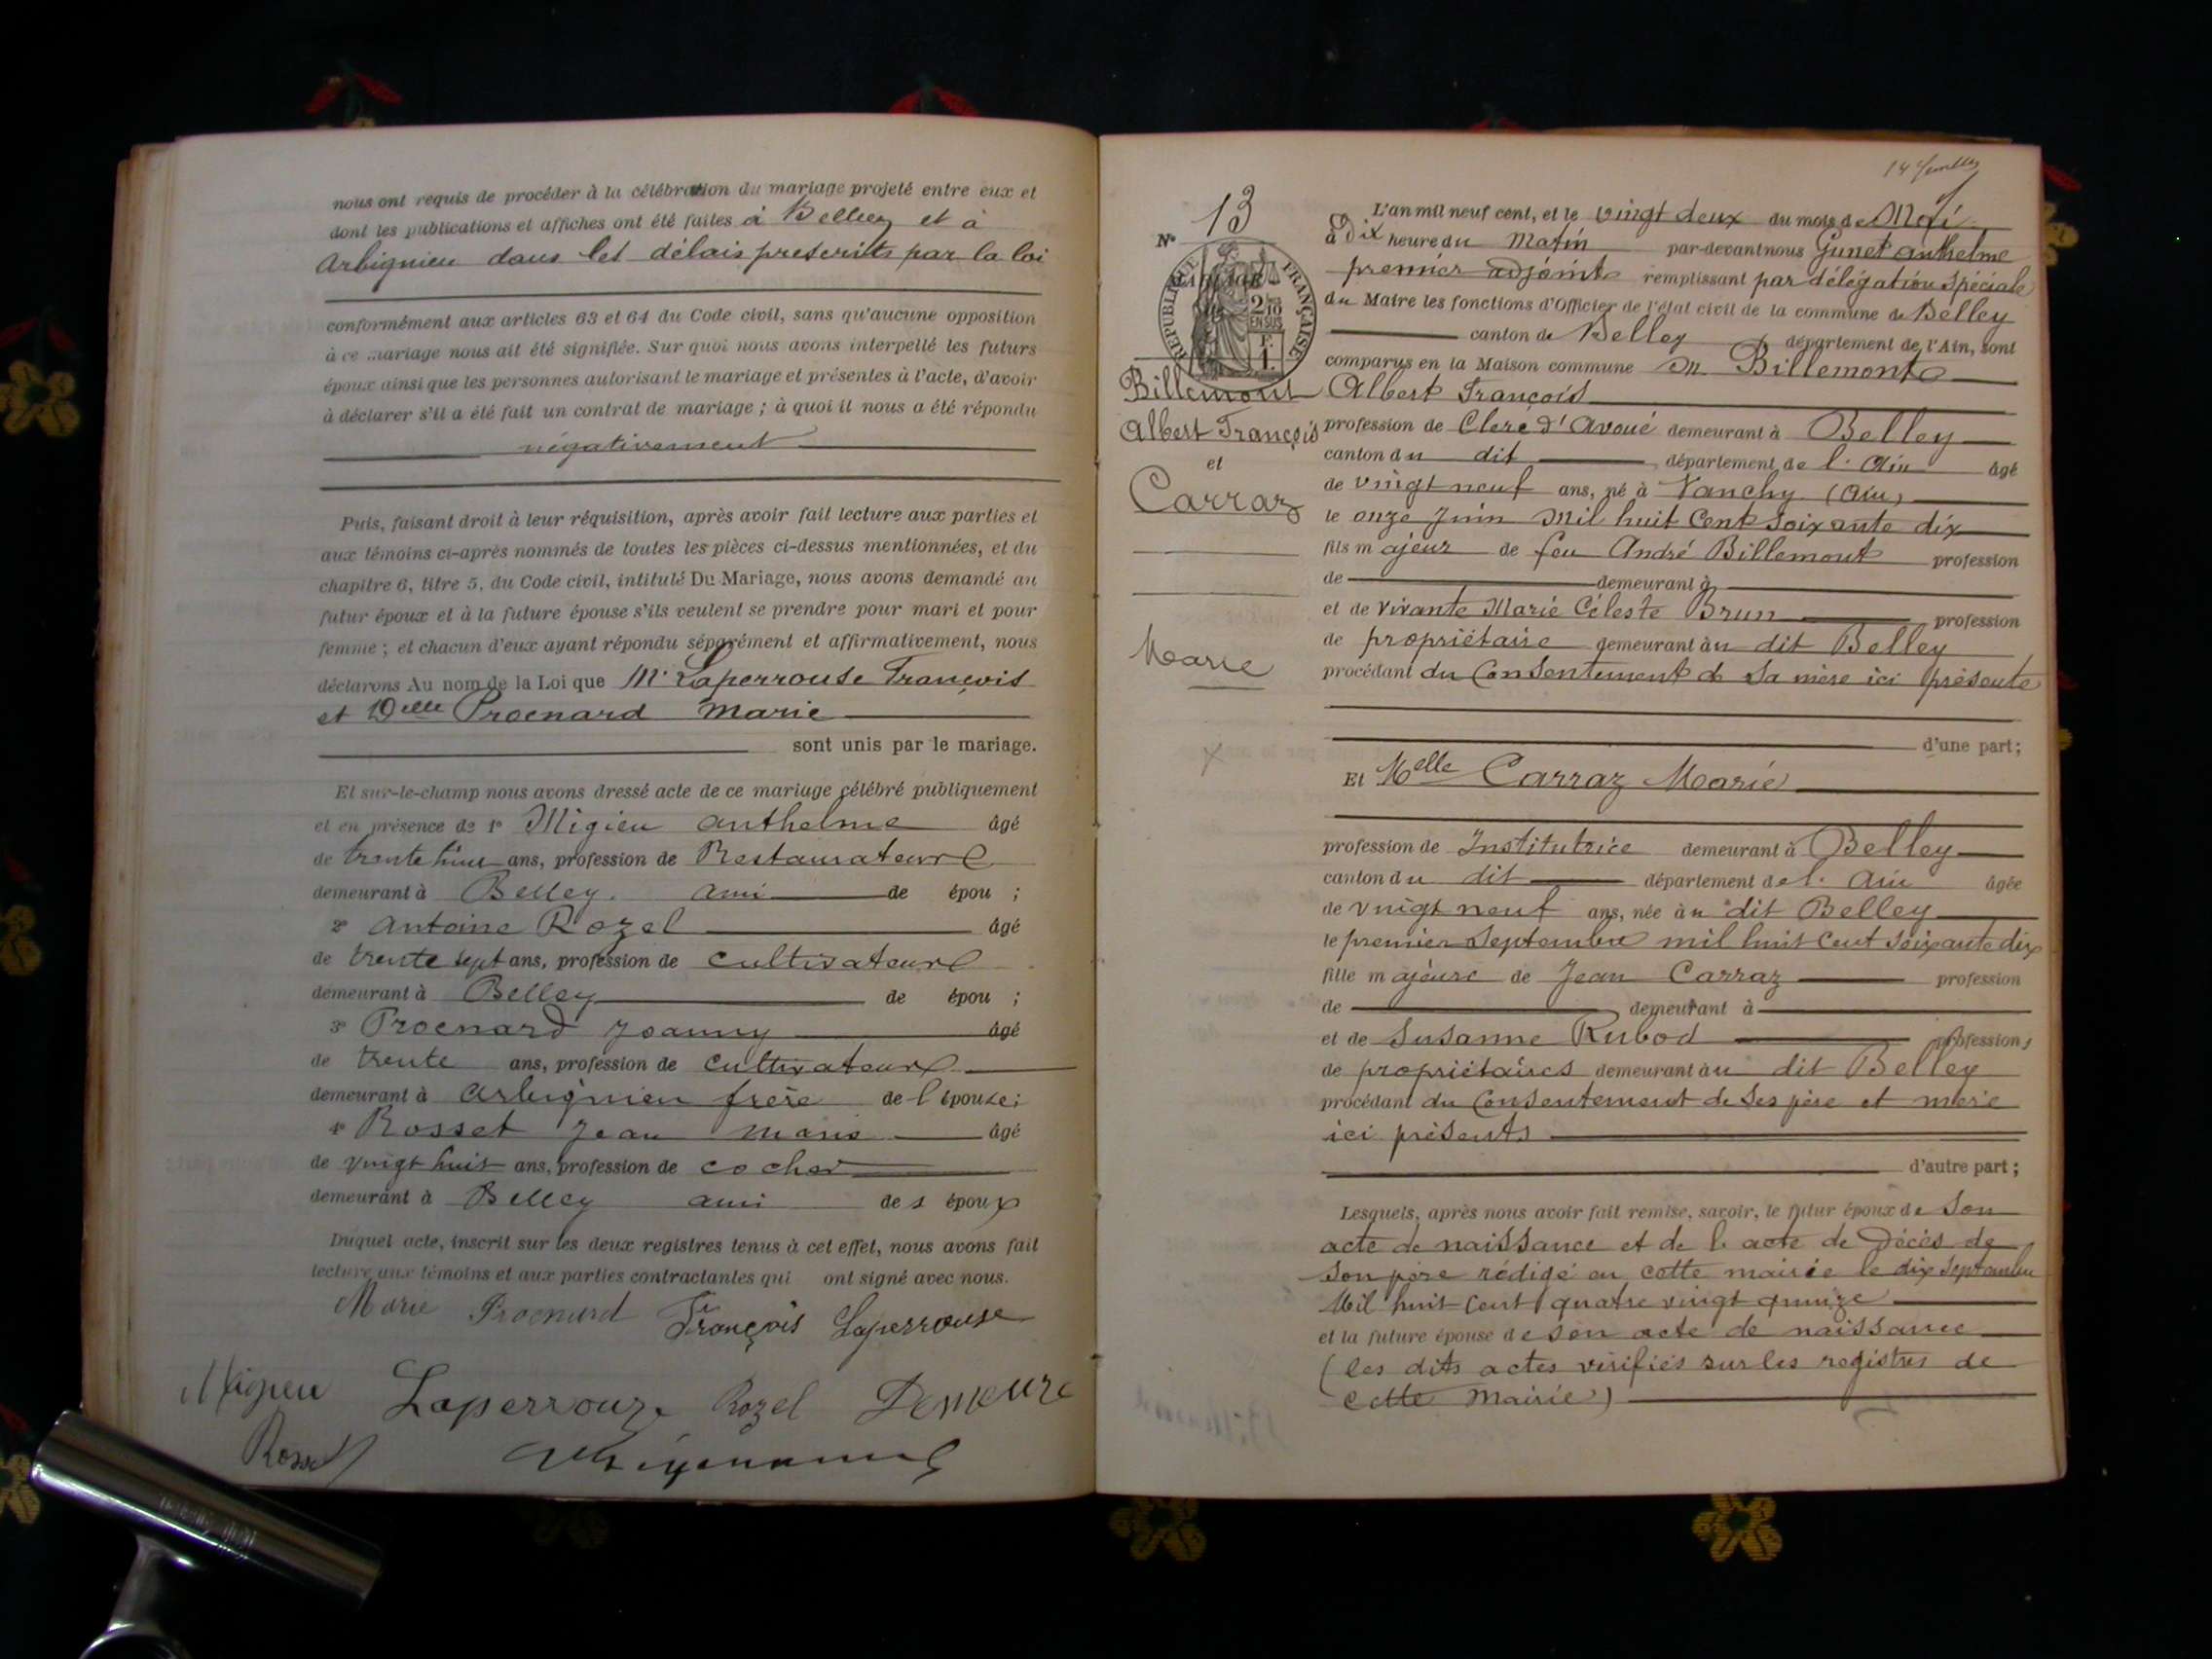 nous ont requis de procéder à la célébration du mariage projeté entre eux et
dont les publications et affiches ont été faites à Belley et à
Arbignieu dans les délais prescrits par la loi
conformément aux articles 63 et 64 du Code civil, sans qu'aucune opposition
à ce mariage nous ait été signifiée. Sur quoi nous avons interpellé les futurs
époux ainsi que les personnes autorisant le mariage et présentes à l'acte, d'avoir
à déclarer s'il a été fait un contrat de mariage ; à quoi il nous a été répondu
négativement
Puis, faisant droit à leur réquisition, après avoir fait lecture aux parties et
aux témoins ci-après nommés de toutes les pièces ci-dessus mentionnées, et du
chapitre 6, titre 5, du Code civil, intitulé Du Mariage, nous avons demandé au
futur époux et à la future épouse s'ils veulent se prendre pour mari et pour
femme ; et chacun d'eux ayant répondu séparément et affirmativement, nous
déclarons Au nom de la Loi que Mr Laperrouse François
et Delle Proenard Marie
sont unis par le mariage.
Et sur-le-champ nous avons dressé acte de ce mariage célébré publiquement
et en présence de 1° Migieu Anthelme âgé
de trente huit ans, profession de Restaurateur
demeurant à Belley. ami de épou ;
2° Antoine Rozel âgé
de trente sept ans, profession de cultivateur
demeurant à Belley de épou ;
3° Proenard Joanny âgé
de trente ans, profession de cultivateur
demeurant à Arbignieu frère de l'épouse ;
4° Rosset Jean Marie âgé
de vingt huit ans, profession de cocher
demeurant à Belley ami des époux
Duquel acte, inscrit sur les deux registres tenus à cet effet, nous avons fait
lecture aux témoins et aux parties contractantes qui ont signé avec nous.
Marie Proenard François Laperrouse
Migieu Laperrouze Rozel Demeure
Rosset
N° 13
RÉPUBLIQUE FRANÇAISE
2/10 EN SUS
1 F.
Billemont
Albert François
et
Carraz
Marie
L'an mil neuf cent, et le vingt deux du mois de Mai
à Dix heure du Matin par-devant nous Gunet Anthelme
premier adjoint remplissant par délégation spéciale
du Maire les fonctions d'Officier de l'état civil de la commune de Belley
canton de Belley département de l'Ain, sont
comparus en la Maison commune Mr Billemont
Albert François
profession de Clerc d'Avoué demeurant à Belley
canton du dit département de l'Ain âgé
de vingt neuf ans, né à Vanchy (Ain)
le onze Juin Mil huit Cent Soixante dix
fils majeur de feu André Billemont profession
de demeurant à
et de vivante Marie Céleste Brun profession
de propriétaire demeurant au dit Belley
procédant du Consentement de sa mère ici présente
d'une part ;
Et Melle Carraz Marie
profession de Institutrice demeurant à Belley
canton du dit département de l'Ain âgée
de vingt neuf ans, née au dit Belley
le premier Septembre mil huit cent soixante dix
fille majeure de Jean Carraz profession
de demeurant à
et de Susanne Rubod profession
de propriétaires demeurant au dit Belley
procédant du Consentement de ses père et mère
ici présents
d'autre part ;
Lesquels, après nous avoir fait remise, savoir, le futur époux de son
acte de naissance et de l'acte de Décès de
son père rédigé en cette mairie le dix Septembre
Mil huit Cent quatre vingt quinze
et la future épouse de son acte de naissance
(les dits actes vérifiés sur les registres de
cette Mairie)